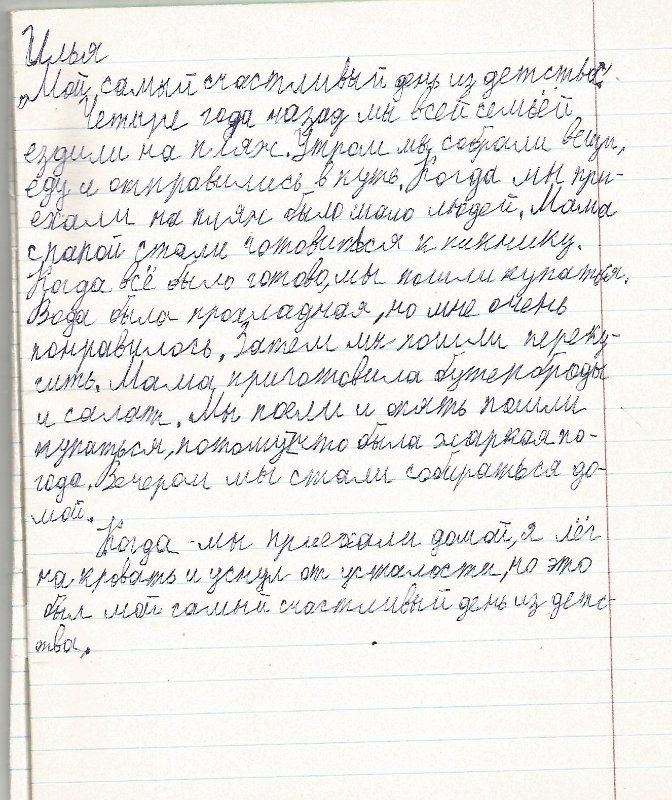 Илья
„Мой самый счастливый день из детства".
Четыре года назад мы всей семьёй
ездили на пляж. Утром мы собрали вещи,
еду и отправились в путь. Когда мы при-
ехали на пляж было мало людей. Мама
с папой стали готовиться к пикнику.
Когда всё было готово, мы пошли купаться.
Вода была прохладная, но мне очень
понравилось. Затем мы пошли переку-
сить. Мама приготовила бутерброды
и салат. Мы поели и опять пошли
купаться, потому что была жаркая по-
года. Вечером мы стали собираться до-
мой.
Когда мы приехали домой, я лёг
на кровать и уснул от усталости, но это
был мой самый счастливый день из детс-
тва.